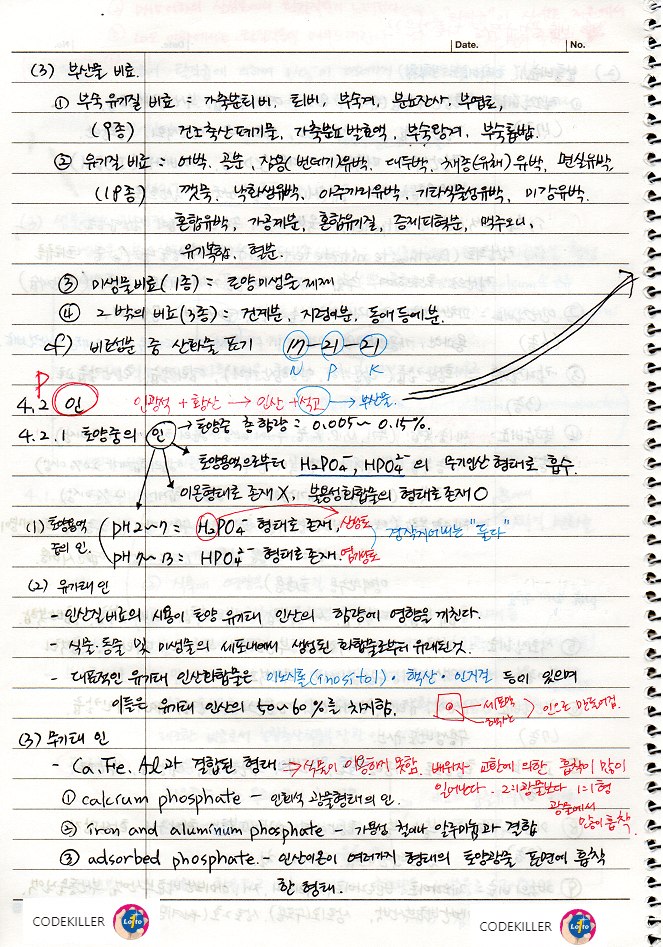 Date. No.
(3) 부산물 비료.
① 부숙유기질 비료 = 가축분퇴비, 퇴비, 부숙겨, 분뇨잔사, 부엽토,
(9종) 건조축산폐기물, 가축분뇨발효액, 부숙왕겨, 부숙톱밥.
② 유기질 비료 = 어박, 골분, 잠용(번데기)유박, 대두박, 채종(유채)유박, 면실유박,
(18종) 깻묵, 낙화생유박, 아주까리유박, 기타식물성유박, 미강유박,
혼합유박, 가공계분, 혼합유기질, 증제피혁분, 맥주오니,
유기복합, 혈분.
③ 미생물비료(1종) = 토양미생물제제
④ 그 밖의 비료(3종) = 건계분, 지렁이분, 동애등에분.
cf) 비료성분 중 산화물 표기 17-21-21
N P K
P
4.2 인 인광석 + 황산 → 인산 + 석고 → 부산물.
4.2.1 토양중의 인 → 토양중 총함량 = 0.005~0.15%.
토양용액으로부터 H₂PO₄⁻, HPO₄²⁻의 무기인산 형태로 흡수.
이온형태로 존재 X, 불용성화합물의 형태로 존재 O
(1) 토양용액 중의 인. pH 2~7 = H₂PO₄⁻ 형태로 존재, 산성토
pH 7~13 = HPO₄²⁻ 형태로 존재. 염기성토 경작지에서는 "둘다"
(2) 유기태 인
- 인산질비료의 시용이 토양 유기태 인산의 함량에 영향을 끼친다.
- 식물·동물 및 미생물의 세포내에서 생성된 화합물로부터 유래된것.
- 대표적인 유기태 인산화합물은 이노시톨(inositol)·핵산·인지질 등이 있으며
이들은 유기태 인산의 50~60%를 차지함. 세포막 인으로 만들어짐.
(3) 무기태 인
- Ca, Fe, Al과 결합된 형태 → 식물이 이용하지 못함. 배위자 교환에 의한 흡착이 많이
일어난다. 2:1광물보다 1:1형
① calcium phosphate - 인회석 광물형태의 인. 광물에서
② iron and aluminum phosphate - 가용성 철이나 알루미늄과 결합 많이 흡착.
③ adsorbed phosphate. - 인산이온이 여러가지 형태의 토양광물 표면에 흡착
한 형태.
CODEKILLER
CODEKILLER